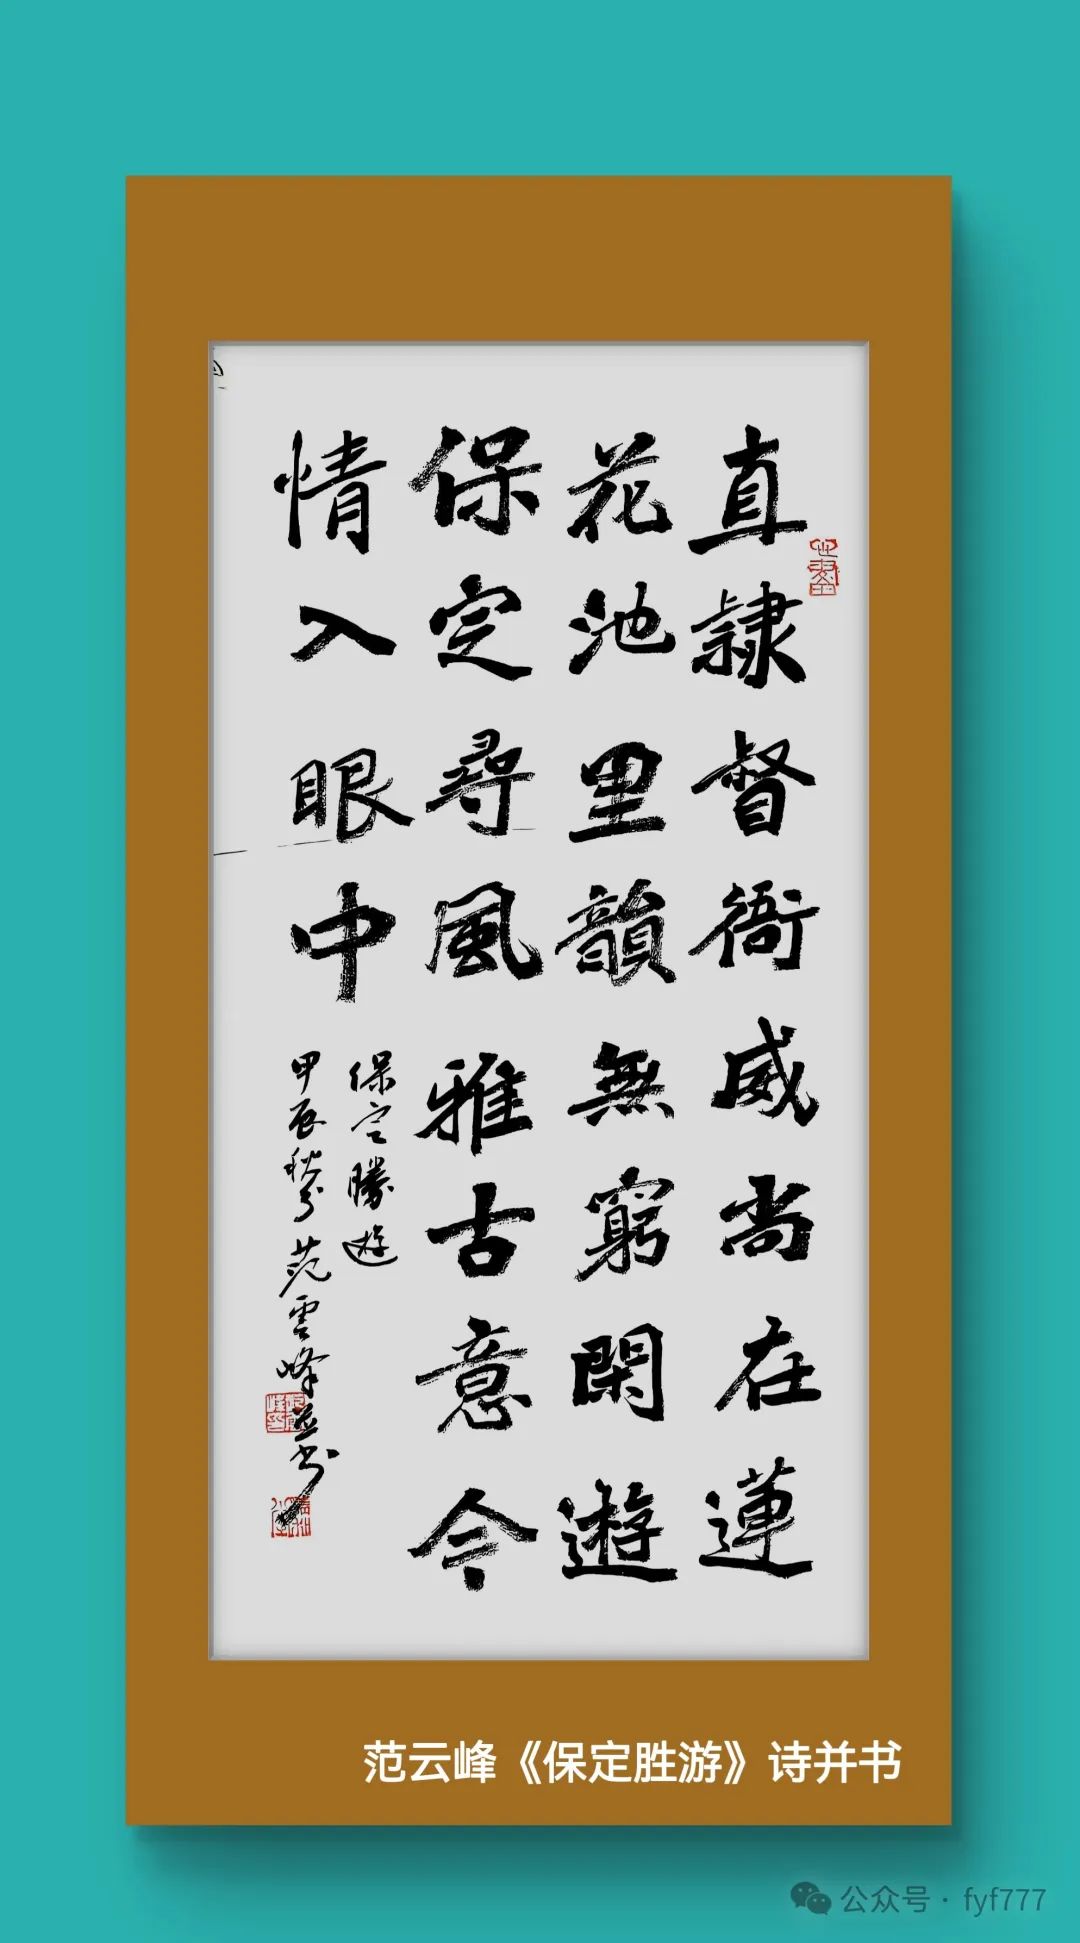 直隸督衙威尚在蓮
花池里韻無窮閑遊
保定尋風雅古意今
情入眼中
保定勝遊
甲辰秋分范雲峰並书
范云峰《保定胜游》诗并书
公众号·fyf777